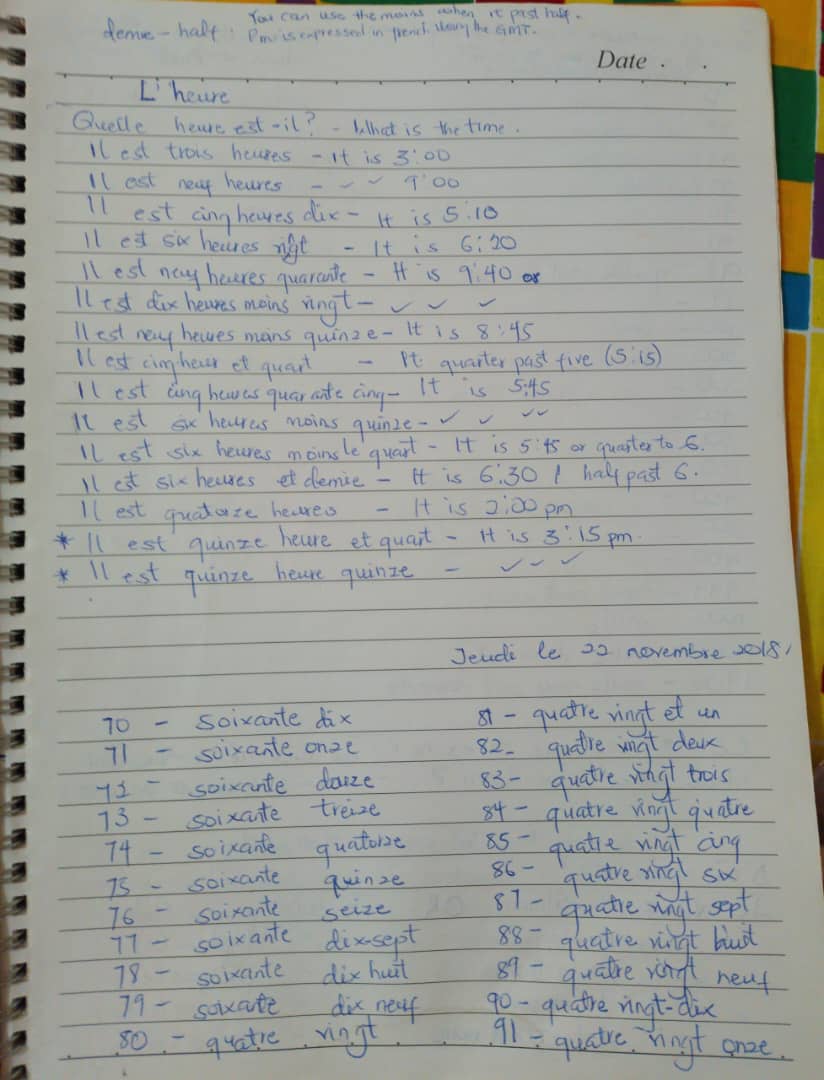 You can use the moins when it past half.
demie - half : Pm is expressed in french using the GMT.
Date . .
L'heure
Quelle heure est-il? - What is the time.
Il est trois heures - It is 3:00
Il est neuf heures - ✓ ✓ 9:00
Il est cinq heures dix - It is 5:10
Il est six heures vingt - It is 6:20
Il est neuf heures quarante - It is 9:40 or
Il est dix heures moins vingt - ✓ ✓ ✓
Il est neuf heures moins quinze - It is 8:45
Il est cinq heur et quart - It quarter past five (5:15)
Il est cinq heures quarante cinq - It is 5:45
Il est six heures moins quinze - ✓ ✓ ✓✓
Il est six heures moins le quart - It is 5:45 or quarter to 6.
Il est six heures et demie - It is 6:30 / half past 6.
Il est quatorze heures - It is 2:00 pm
* Il est quinze heure et quart - It is 3:15 pm.
* Il est quinze heure quinze - ✓ ✓ ✓
Jeudi le 22 novembre 2018,
70 - soixante dix 81 - quatre vingt et un
71 - soixante onze 82 - quatre vingt deux
72 - soixante douze 83 - quatre vingt trois
73 - soixante treize 84 - quatre vingt quatre
74 - soixante quatorze 85 - quatre vingt cinq
75 - soixante quinze 86 - quatre vingt six
76 - soixante seize 87 - quatre vingt sept
77 - soixante dix-sept 88 - quatre vingt huit
78 - soixante dix huit 89 - quatre vingt neuf
79 - soixante dix neuf 90 - quatre vingt-dix
80 - quatre vingt 91 - quatre vingt onze